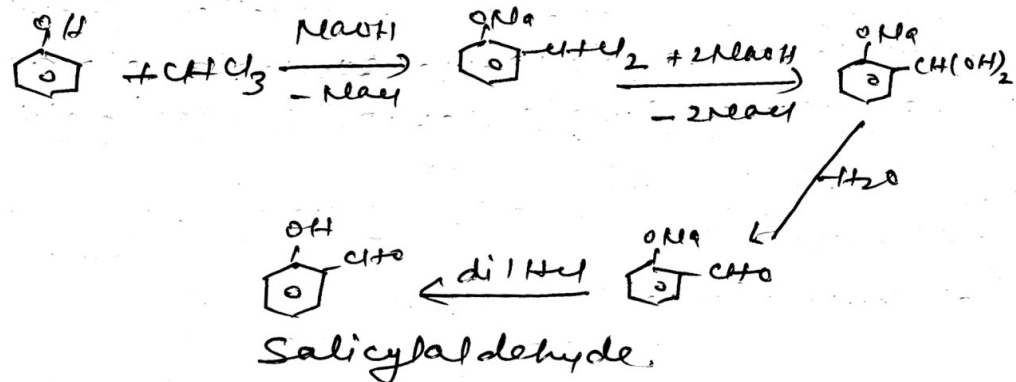 OH + CHCl3 NaOH - NaCl ONa CHCl2 + 2NaOH - 2NaCl ONa CH(OH)2
-H2O
OH CHO dil HCl ONa CHO
Salicylaldehyde.